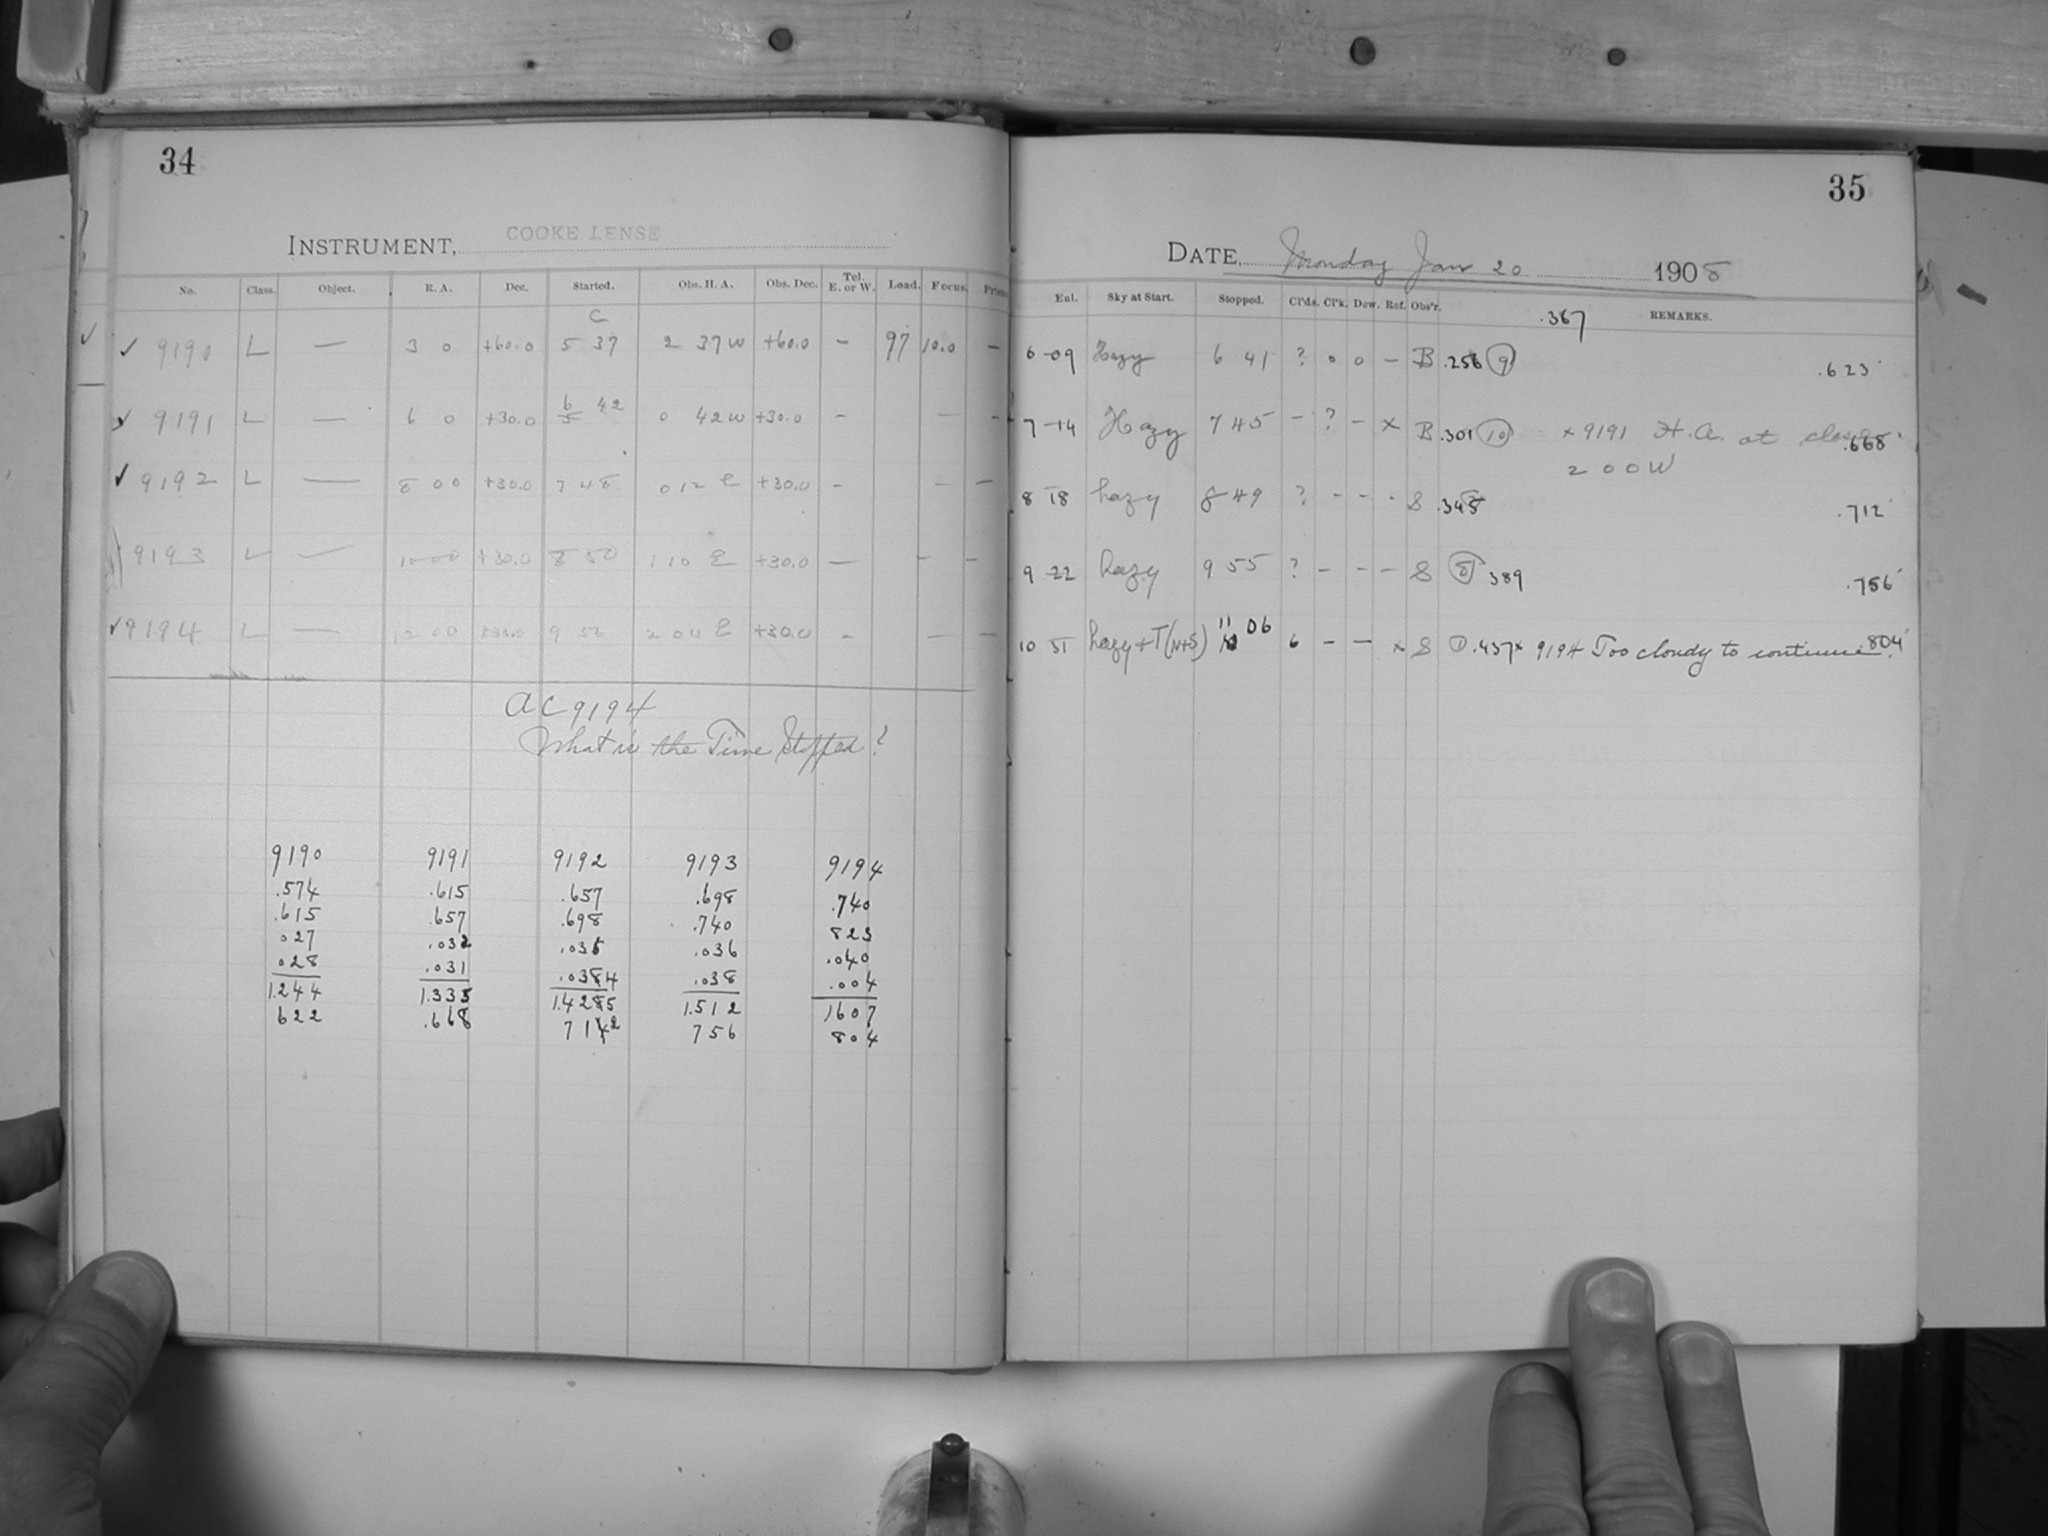 34
INSTRUMENT, COOKE LENSE
No. Class. Object. R. A. Dec. Started. Obs. H. A. Obs. Dec. Tel. E. or W. Load. Focus.
C
✓ 9190 L — 3 0 +60.0 5 37 2 37 W +60.0 — 97 10.0 —
9191 L — 6 0 +30.0 6 42 0 42 W +30.0 — — —
✓ 9192 L — 8 00 +30.0 7 48 0 12 E +30.0 — — —
9193 L — 10 00 +30.0 8 50 1 10 E +30.0 — — —
✓ 9194 L — 12 00 +30.0 9 56 2 04 E +30.0 — — —
AC 9194
What is the Time Stopped?
9190 9191 9192 9193 9194
.574 .615 .657 .698 .740
.615 .657 .698 .740 823
027 .032 .035 .036 .040
028 .031 .0384 .038 .004
1.244 1.335 1.4285 1.512 1607
622 .668 7142 756 804
35
DATE, Monday Jan 20 1908
Ent. Sky at Start. Stopped. Cl'ds. Cl'k. Dew. Ref. Obs'r. REMARKS.
.367
6-09 Hazy 6 41 ? 0 0 — B .256 (9) .623
7-14 Hazy 7 45 — ? — x B .301 (10) x 9191 H.A. at close .668
2 00 W
8 18 hazy 8 49 ? - - - S .345 .712
9 22 hazy 9 55 ? — — — S (8) 389 .756
10 51 hazy + T (N+S) 11 06 6 — — x S .437 x 9194 Too cloudy to continue. .804